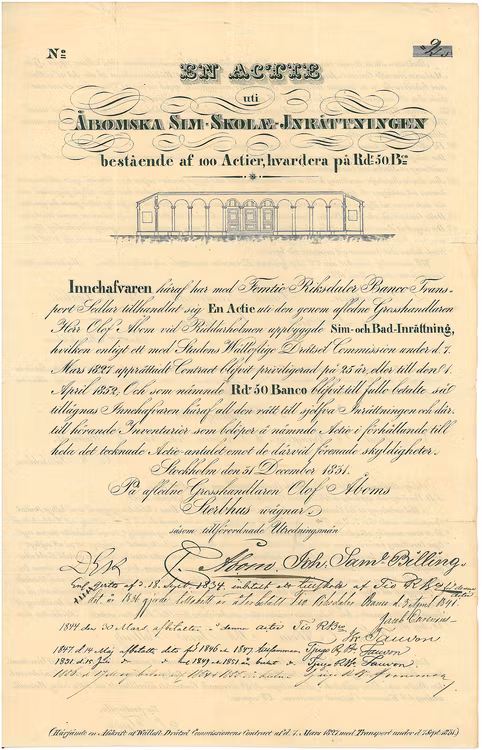 No 2
EN ACTIE
uti
ÅBOMSKA SIM-SKOLÆ-INRÄTTNINGEN
bestående af 100 Actier, hvardera på Rdr. 50 Bco
Innehafvaren häraf har med Femtio Riksdaler Banco Trans-
port Sedlar tillhandlat sig En Actie uti den genom aflidne Grosshandlaren
Herr Olof Åbom vid Riddarholmen uppbyggde Sim-och Bad-Inrättning,
hvilken enligt ett med Stadens Wällofliga Drätsel Commission under d. 7.
Mars 1827 upprättadt Contract blifvit privilegerad på 25 år, eller till den 1.
April 1852. Och som nämnde Rdr 50 Banco blifvit till fullo betalte så
tillägnas Innehafvaren häraf all den rätt till sjelfva Inrättningen och der.
till hörande Inventarier som belöper å nämnde Actie i förhållande till
hela det tecknade Actie-antalet emot de dervid förenade skyldigheter.
Stockholm den 31 December 1831.
På aflidne Grosshandlaren Olof Åboms
Sterbhus wägnar
såsom tillförordnade Utredningsmän
Åbom. Joh. Saml. Billing
d. 18. Sept. 1834. af Tio R
Tio Riksdaler Banco d. 3 April 1841.
1844 den 30 Mars afbetaltes å denna actie Tio R
Tauvon
1847 d. 14 Maj afbetalte dito för 1846 och 1847 tillsammans Tjugo R Tauvon
1851 d. 15 1849 1851 Tjugo R Tauvon
Tjugo R
(Härjämte en Afskrift af Wällofl. Drätsel Commissionens Contract af d. 7. Mars 1827 med Transport under d. 7 Sept. 1831.)